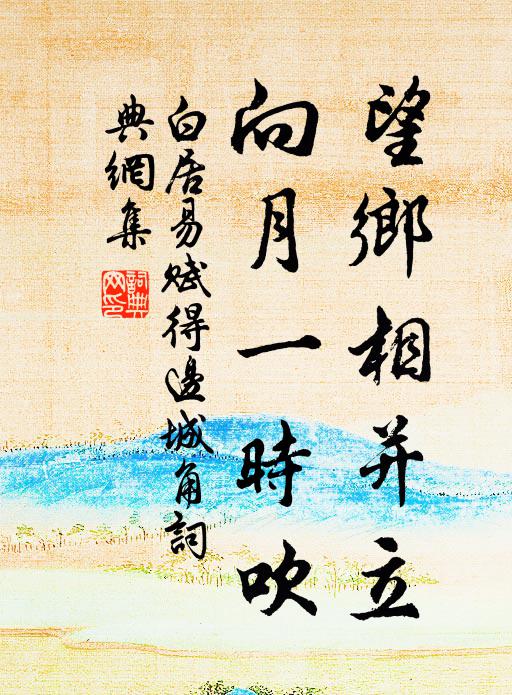 望鄉相并立
向月一時吹
白居易賦得邊城角詞
典網集
詞典網印